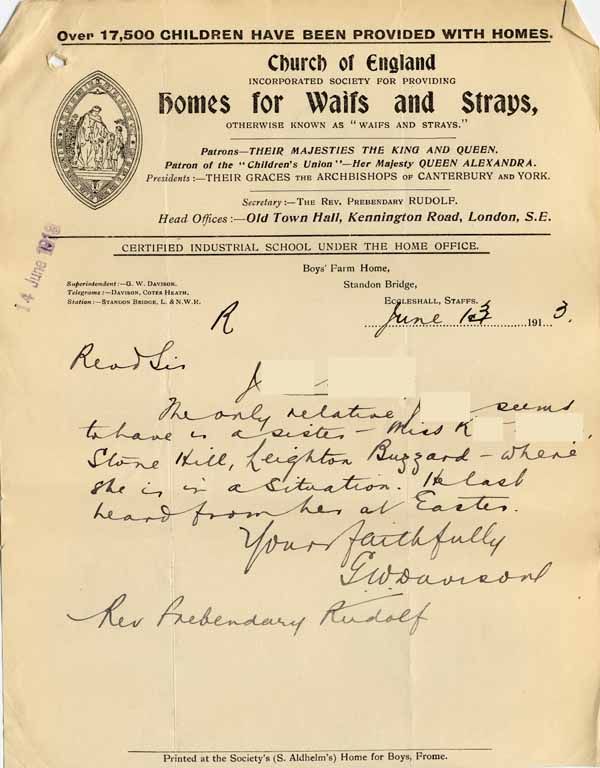 Over 17,500 CHILDREN HAVE BEEN PROVIDED WITH HOMES.
Church of England
INCORPORATED SOCIETY FOR PROVIDING
Homes for Waifs and Strays,
OTHERWISE KNOWN AS "WAIFS AND STRAYS."
Patrons—THEIR MAJESTIES THE KING AND QUEEN.
Patron of the "Children's Union"—Her Majesty QUEEN ALEXANDRA.
Presidents:—THEIR GRACES THE ARCHBISHOPS OF CANTERBURY AND YORK.
Secretary:—THE REV. PREBENDARY RUDOLF.
Head Offices:—Old Town Hall, Kennington Road, London, S.E.
14 June 1913
CERTIFIED INDUSTRIAL SCHOOL UNDER THE HOME OFFICE.
Boys' Farm Home,
Standon Bridge,
Eccleshall, Staffs.
Superintendent:—G. W. DAVISON.
Telegrams:—DAVISON, COTES HEATH.
Station:—STANDON BRIDGE, L. & N.W.R.
R
June 13 1913.
Revd Sir
J
The only relative J seems
to have is a sister – Miss K
Stone Hill, Leighton Buzzard – where
she is in a situation. He last
heard from her at Easter.
Yours faithfully
G.W. Davison
Rev Prebendary Rudolf
Printed at the Society's (S. Aldhelm's) Home for Boys, Frome.